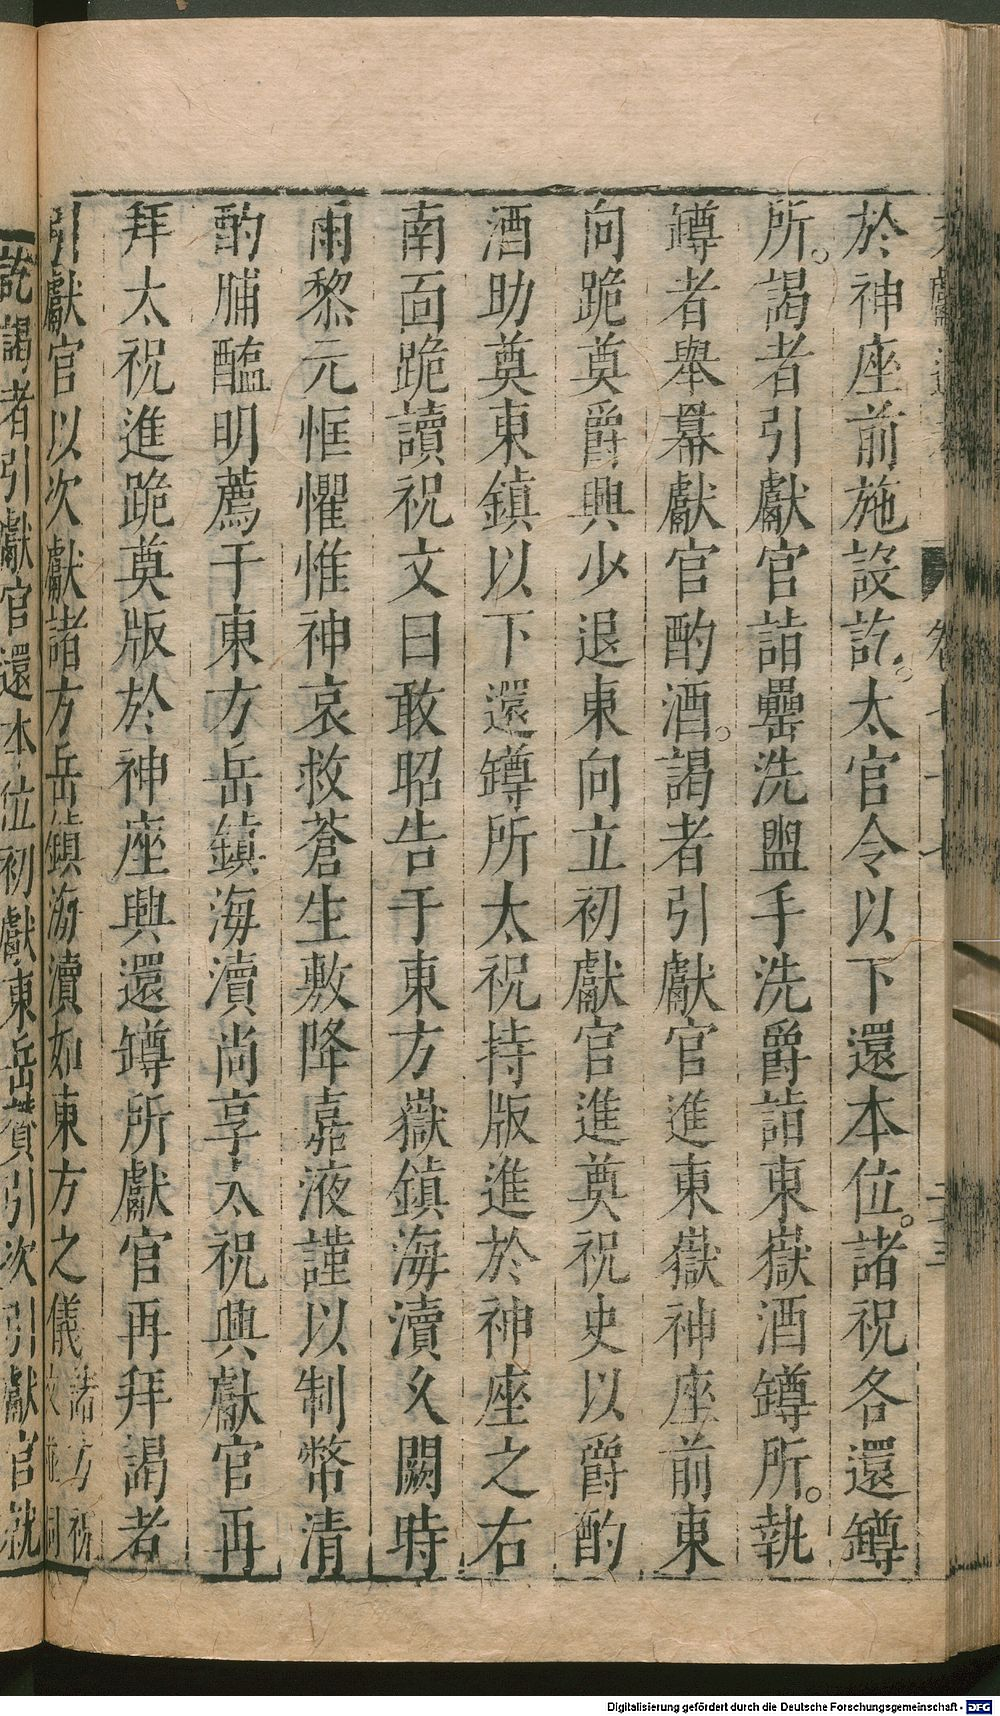 於神座前施設訖。太官令以下還本位。諸祝各還罇
所。謁者引獻官詣罍洗盥手洗爵詣東嶽酒罇所。執
罇者舉羃獻官酌酒。謁者引獻官進東嶽神座前東
向跪奠爵興少退東向立初獻官進奠祝史以爵酌
酒助奠東鎮以下還罇所太祝持版進於神座之右
南面跪讀祝文曰敢昭告于東方嶽鎮海瀆久闕時
雨黎元恇懼惟神哀救蒼生敷降嘉液謹以制幣清
酌脯醢明薦于東方岳鎮海瀆尚享太祝興獻官再
拜太祝進跪奠版於神座興還罇所獻官再拜謁者
引獻官以次獻諸方岳鎮海瀆如東方之儀諸方祝文並同
訖謁者引獻官還本位初獻東岳贊引次引獻官就
Digitalisierung gefördert durch die Deutsche Forschungsgemeinschaft - DFG